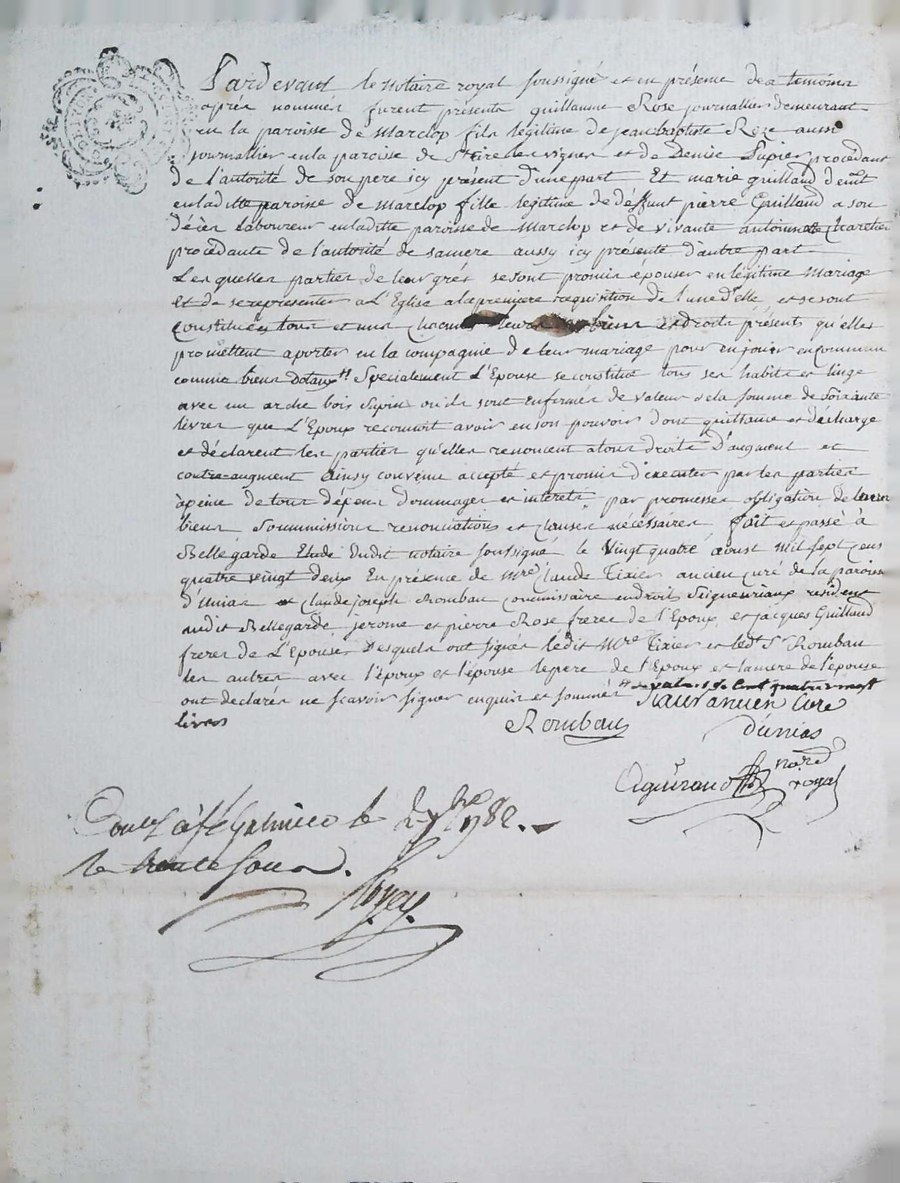 Pardevant le notaire royal soussigné et en présence des temoins
après nommés furent présents guillaume Rose journallier demeurant
en la paroisse de Marclop fils légitime de jean baptiste Roze aussi
journallier en la paroisse de St Cire les vignes et de Denise Papier procédant
de l'autorité de son pere icy présent d'une part Et marie guillaud demt
en laditte paroisse de Marclop fille légitime de déffunt pierre Guillaud a son
décès laboureur en laditte paroisse de Marclop et de vivante antoinette Charetier
procédante de l'autorité de sa mere aussy icy présente d'autre part
Lesquelles parties de leur gré se sont promis épouser en légitime Mariage
Et de se représenter a L'Eglise a la premiere requisition de l'une d'elle, et se sont
constituées tous et uns chacuns leurs biens et droits présents qu'elles
promettent aporter en la compagnie de leur mariage pour en jouir en commun
comme biens dotaux Spécialement L'Epouse se constitue tous ses habits et linge
avec un arche bois sapin ou ils sont enfermés de valeur de la somme de soixante
livres que L'Epoux reconnoit avoir en son pouvoir dont quittance et décharge
et déclarent les parties qu'elles renoncent a tous droits d'augment et
contre augment Ainsy convenu accepté et promis d'executer par les parties
à peine de tous dépens dommages et interets par promesses obligation de leurs
biens Soummissions renonciations et clauses nécessaires fait et passé à
Bellegarde Etude dudit notaire soussigné le vingt quatre aoust Mil sept cens
quatre vingt deux En présence de Mre Claude Tixier ancien curé de la paroisse
d'Unias et Claude joseph Rombau Commissaire en droits Seigneuriaux résident
audit Bellegarde, jerome et pierre Rose freres de l'Epoux, et jacques Guillaud
frere de L'Epouse, Desquels ont signés ledit Mre Tixier et ledt Sr Rombau
les autres avec l'époux et l'épouse le pere de l'Epoux et la mere de l'épouse
ont déclarés ne scavoir signer enquis et sommés de valeur de cent quatre vingt
livres
ancien Curé
Rombau d'unias
nore
royal
Contlé à St Galmier le 27bre 1782.
R trente sous.